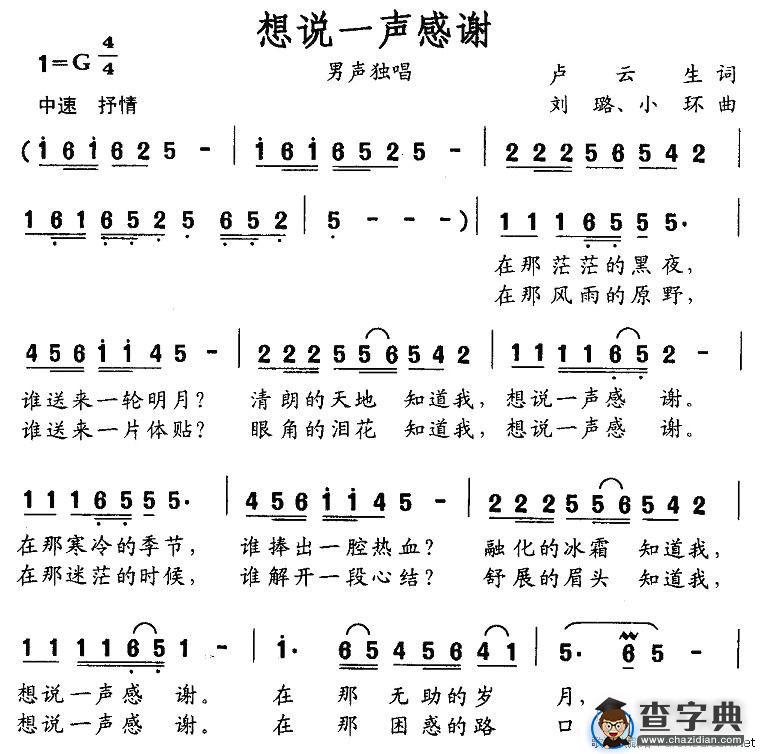 想说一声感谢
1=G 4/4
男声独唱 卢云生词
中速 抒情 刘璐、小环曲
(1 6 1 6 2 5 - | 1 6 1 6 5 2 5 - | 2 2 2 5 6 5 4 2 |
1 6 1 6 5 2 5 6 5 2 | 5 - - -) | 1 1 1 6 5 5 5. |
在那茫茫的黑夜,
在那风雨的原野,
4 5 6 1 1 4 5 - | 2 2 2 5 5 6 5 4 2 | 1 1 1 1 6 5 2 - |
谁送来一轮明月? 清朗的天地 知道我, 想说一声感 谢。
谁送来一片体贴? 眼角的泪花 知道我, 想说一声感 谢。
1 1 1 6 5 5 5. | 4 5 6 1 1 4 5 - | 2 2 2 5 5 6 5 4 2 |
在那寒冷的季节, 谁捧出一腔热血? 融化的冰霜 知道我,
在那迷茫的时候, 谁解开一段心结? 舒展的眉头 知道我,
1 1 1 1 6 5 1 - | 1. 6 5 4 5 6 4 1 | 5. 6 5 -
想说一声感 谢。 在 那 无助的岁 月,
想说一声感 谢。 在 那 困惑的路 口
查字典
www.chazidian.com